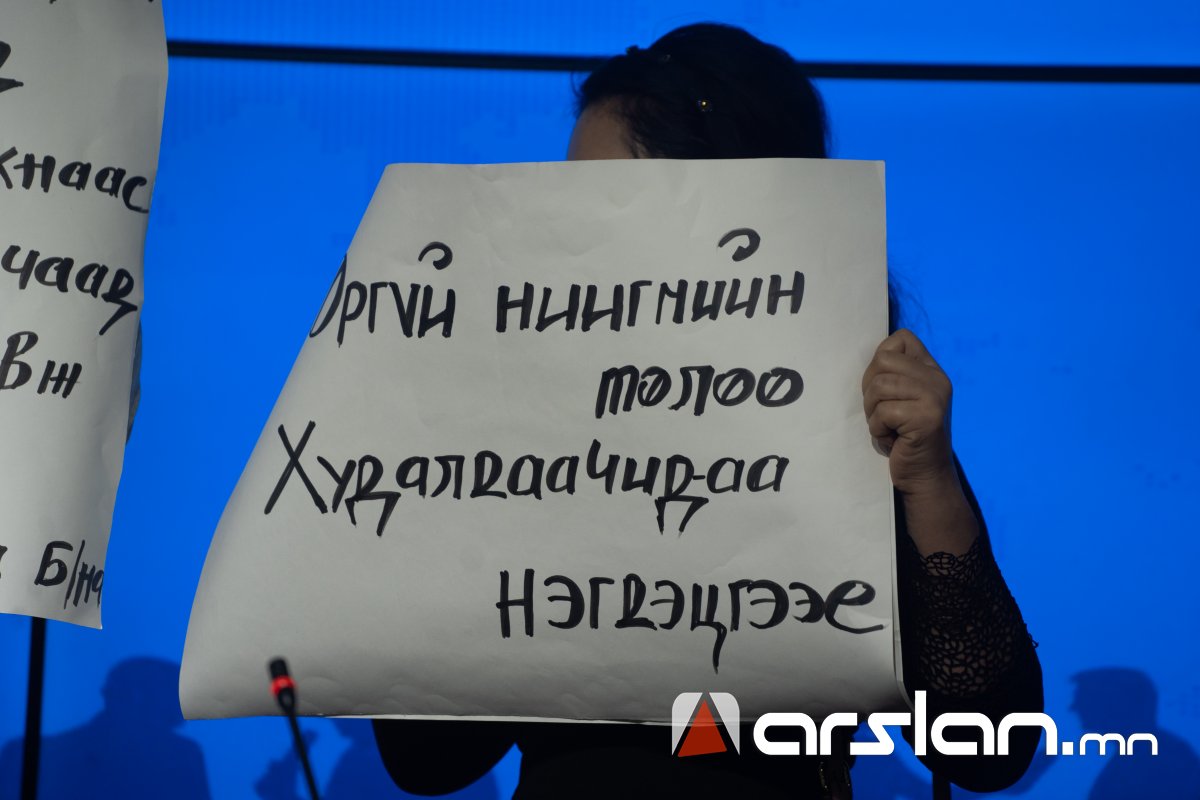 хнаас
чаад
Вж
Б/на
Өргүй ниигмийн
төлөө
Худалдаачид-аа
нэгдэцгээе
arslan.mn